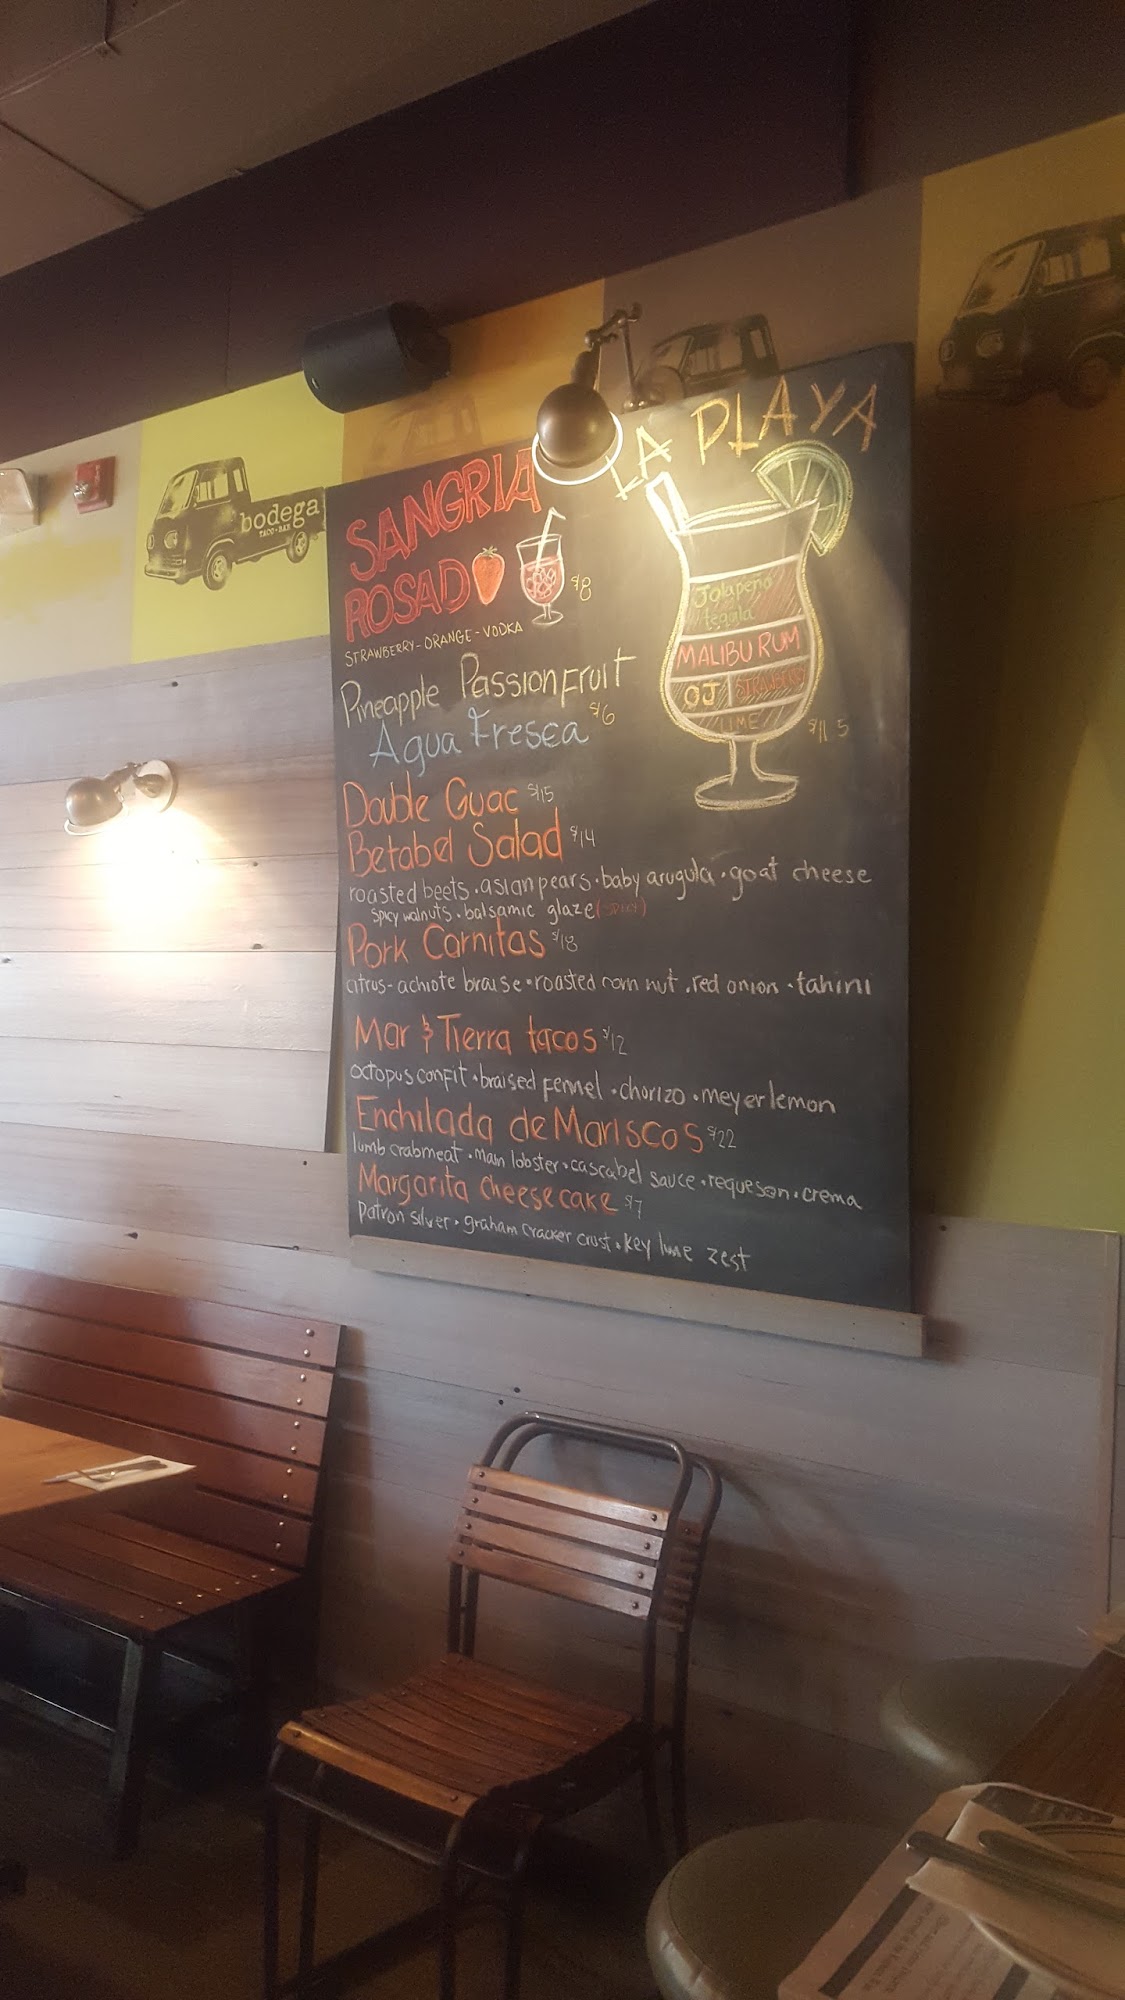 bodega
TACO • BAR
SANGRIA
ROSADO
$8
STRAWBERRY - ORANGE - VODKA
Pineapple Passionfruit
Agua Fresca $6
LA PLAYA
Jalapeño
tequila
MALIBU RUM
OJ STRAWBERRY
LIME
$11.5
Double Guac $15
Betabel Salad $14
roasted beets • asian pears • baby arugula • goat cheese
spicy walnuts • balsamic glaze
Pork Carnitas $18
citrus - achiote braise • roasted corn nut • red onion • tahini
Mar & Tierra tacos $12
octopus confit • braised fennel • chorizo • meyer lemon
Enchilada de Mariscos $22
lumb crabmeat • main lobster • cascabel sauce • requeson • crema
Margarita cheesecake $7
Patron silver • graham cracker crust • key lime zest